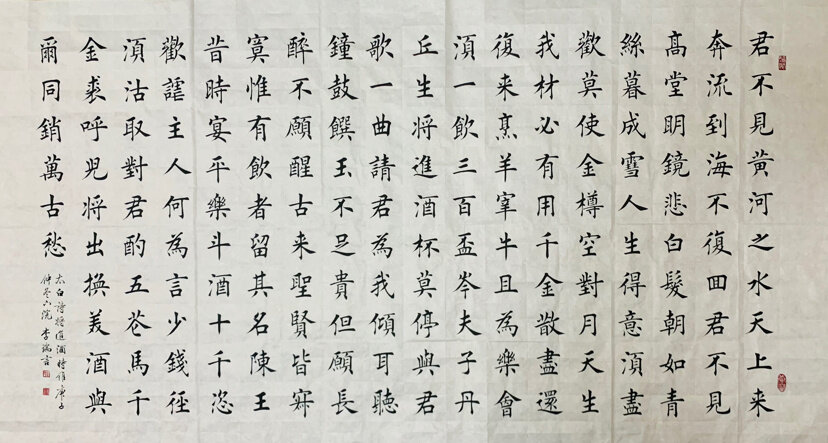 君不見黃河之水天上来
奔流到海不復回君不見
高堂明鏡悲白髮朝如青
絲暮成雪人生得意須盡
歡莫使金樽空對月天生
我材必有用千金散盡還
復来烹羊宰牛且為樂會
須一飲三百盃岑夫子丹
丘生將進酒杯莫停與君
歌一曲請君為我傾耳聽
鐘鼓饌玉不足貴但願長
醉不願醒古来聖賢皆寂
寞惟有飲者留其名陳王
昔時宴平樂斗酒十千恣
歡謔主人何為言少錢徑
須沽取對君酌五花馬千
金裘呼兒將出換美酒與
爾同銷萬古愁
太白詩將進酒時維庚子
李瑞言